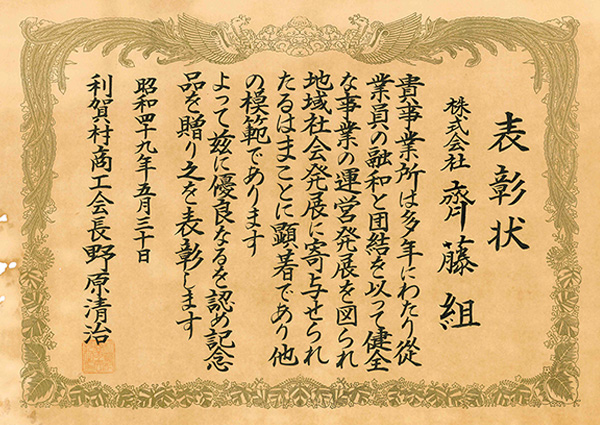 表彰状
株式会社 齊藤組
貴事業所は多年にわたり從
業員の融和と団結を以って健全
な事業の運営発展を図られ
地域社会発展に寄与せられ
たるはまことに顕著であり他
の模範であります
よって茲に優良なるを認め記念
品を贈り之を表彰します
昭和四十九年五月三十日
利賀村商工会長 野原清治